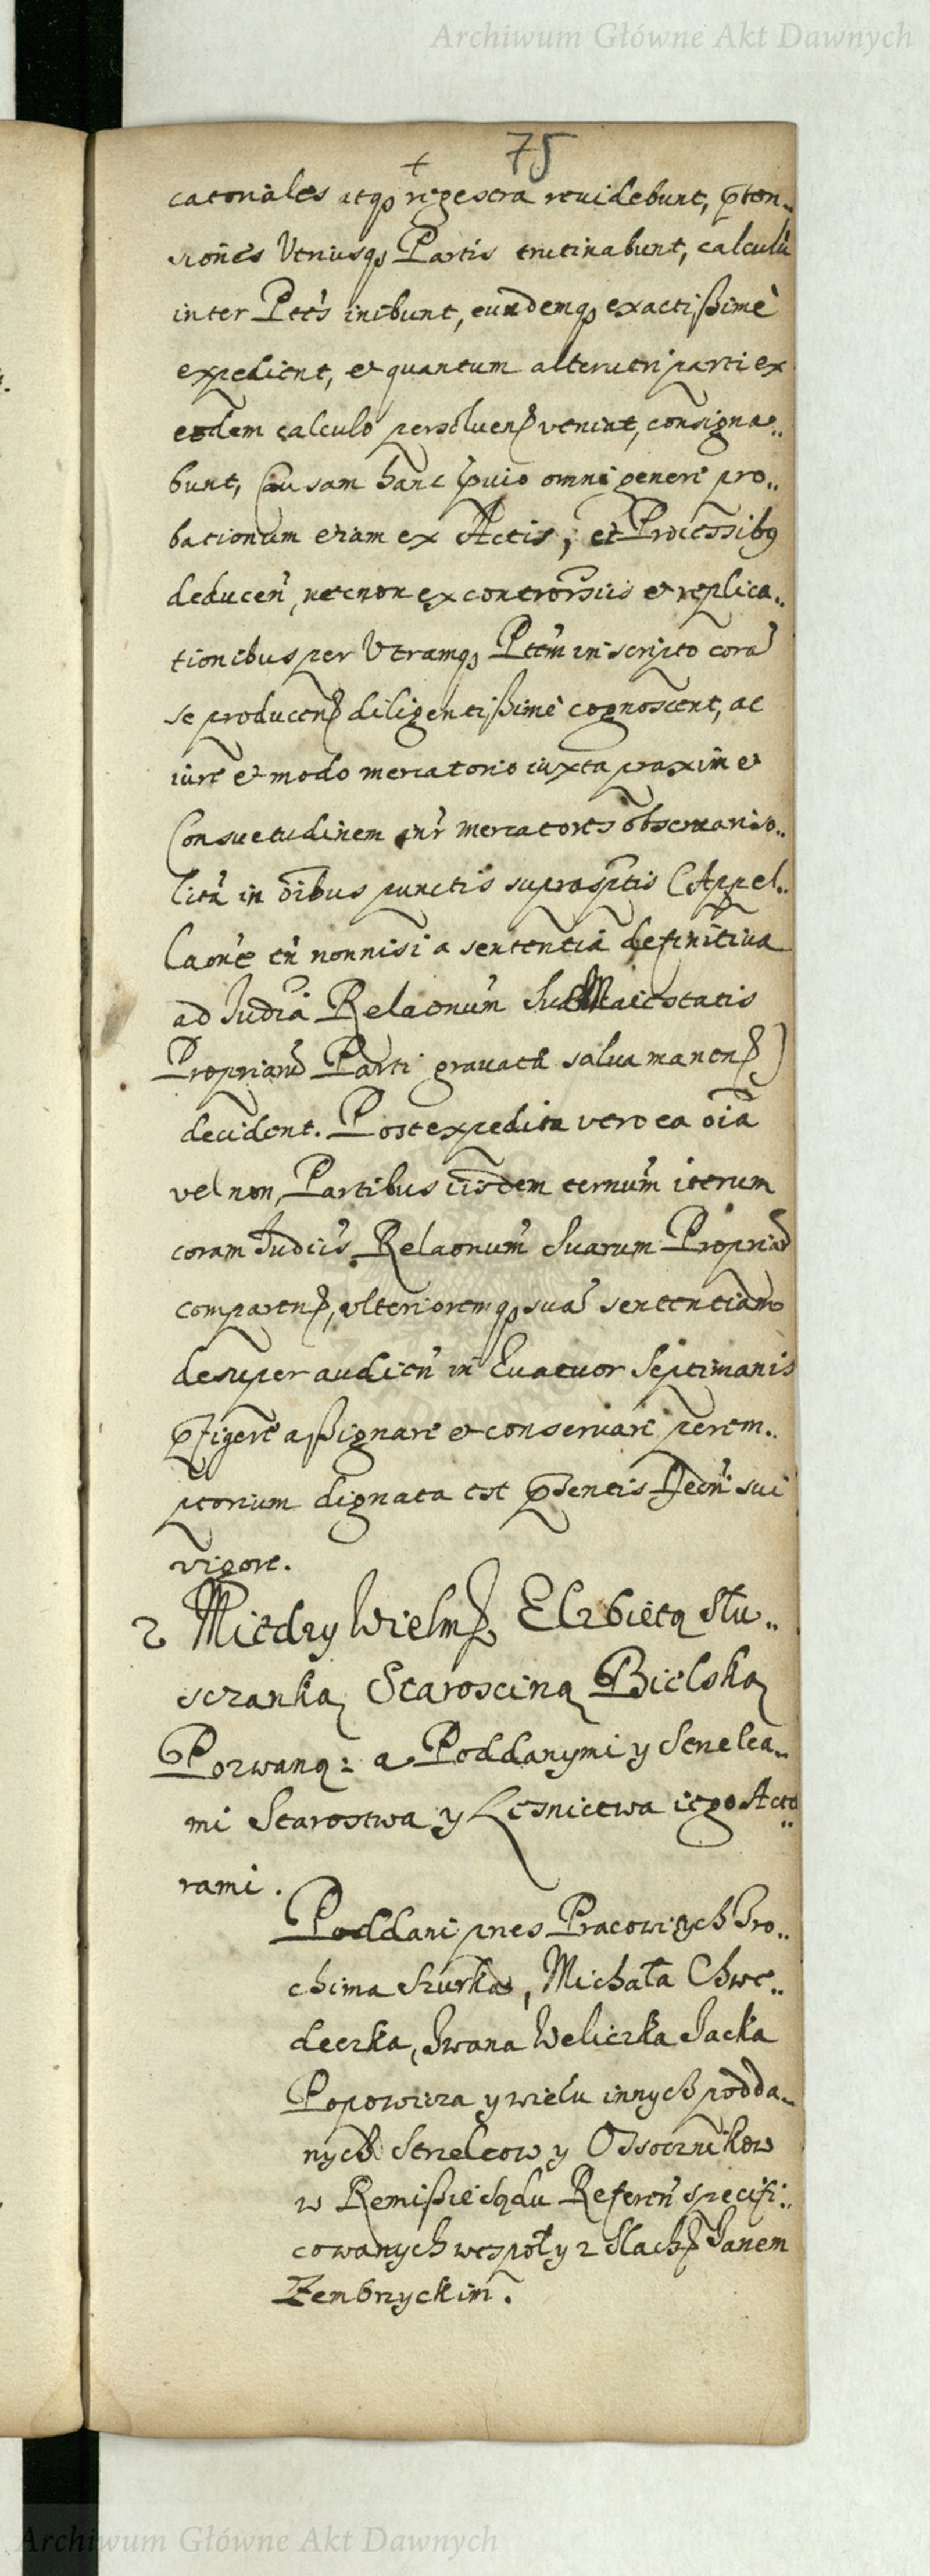 Archiwum Główne Akt Dawnych
75
+
catoriales atq₃ regestra reuidebunt, p̄ten„
sion̄es Vtriusq₃ Partis trutinabunt, calculū
inter Ptes inibunt, eundemq₃ exactißimè
expedient, et quantum alterutri parti ex
eodem calculo persoluen̄ veniat, consigna„
bunt, Causam hanc p̄uio omni genere pro„
bationum etiam ex Actis, et Processibq
deducen̄, necnon ex controrsiis et replica„
tionibus per Vtramq₃ Ptem in scripto corā
se producen̄ diligentißimè cognoscent, ac
iure et modo mercatorio iuxta praxim et
Consuetudinem int̄ mercatores obseruari so„
litā in oībus punctis suprasp̄tis (Appel„
laon̄e tn̄ nonnisi a sententiā definitiua
ad Iudia Relaonum̄ Suae Maiestatis
Propriarū Parti grauatae salua manen̄)
decident. Post expedita vero ea oīa
vel non, Partibus iisdem ternum̄ iterum
coram Iudiis Relaonum̄ Suarum Propriarū
comparen̄, vlterioremq₃ suā sententiam
desuper audien̄ in Quatuor Septimanis
p̄figere aßignare et conseruare perem„
ptorium dignata est p̄sentis Decr̄i sui
vigore.
2 Miedzy Wielm̄ Elzbietą Słu„
sczanką Starosciną Bielską
Pozwaną: a Poddanymi y Strelca„
mi Starostwa y Lesnictwa iego Acto„
rami.
Poddani pnes Pracowitych Iro„
chima Szurka, Michała Chwe„
deczka, Iwana Weliczka Iacka
Popowicza y wielu innych podda„
nych Strzelcow y Ossocznikow
w Remißie Sądu Referen̄ specifi„
cowanych wespoły z Slach̄ Ianem
Zembrzyckim̄.
Archiwum Główne Akt Dawnych